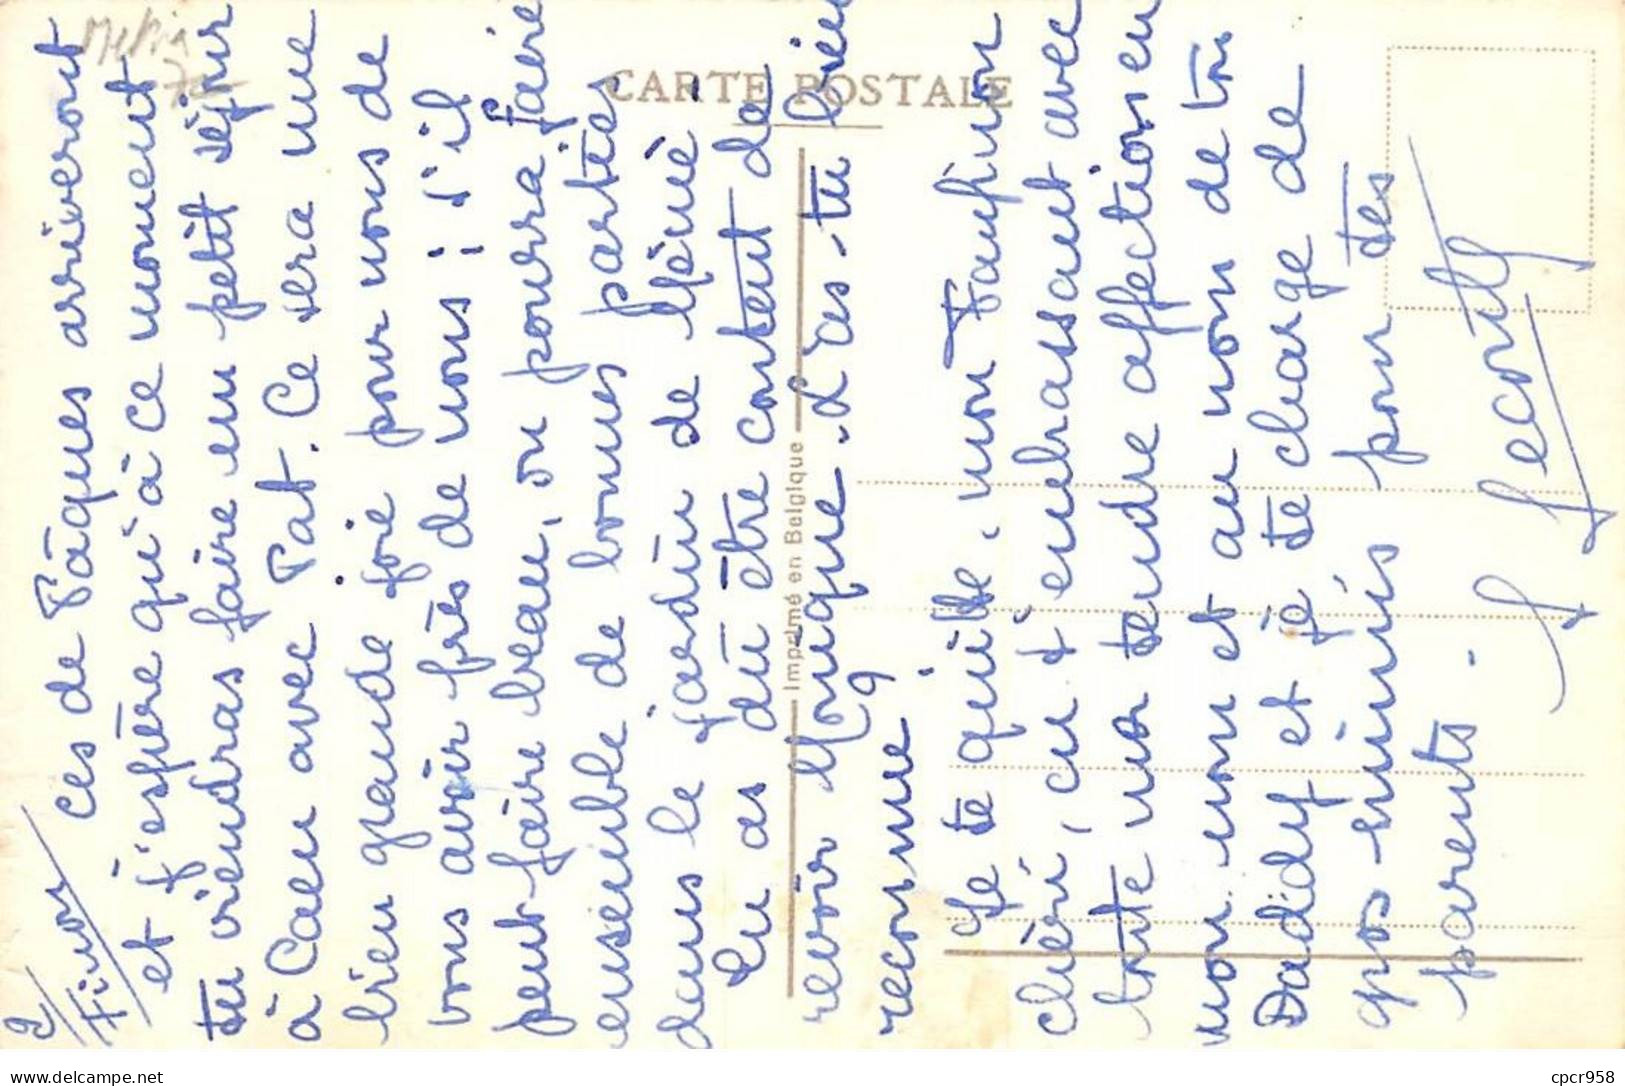 2
Finor
ces de Pâques arriveront
et j'espère qu'à ce moment
tu viendras faire un petit séjour
à Caen avec Pat. Ce sera une
bien grande joie pour nous de
vous avoir près de nous ; s'il
peut-faire beau, on pourra faire
ensemble de bonnes parties
dans le jardin de Mémé.
Tu as dû être content de
revoir Monique. L'as-tu bien
reconnue ?
Je te quitte, mon Fanfinon
chéri, en t'embrassant avec
toute ma tendre affection en
mon nom et au nom de ton
Daddy et je te charge de
gros mimis pour tes
parents.
CARTE POSTALE
Imprimé en Belgique
delcampe.net
cpcr958